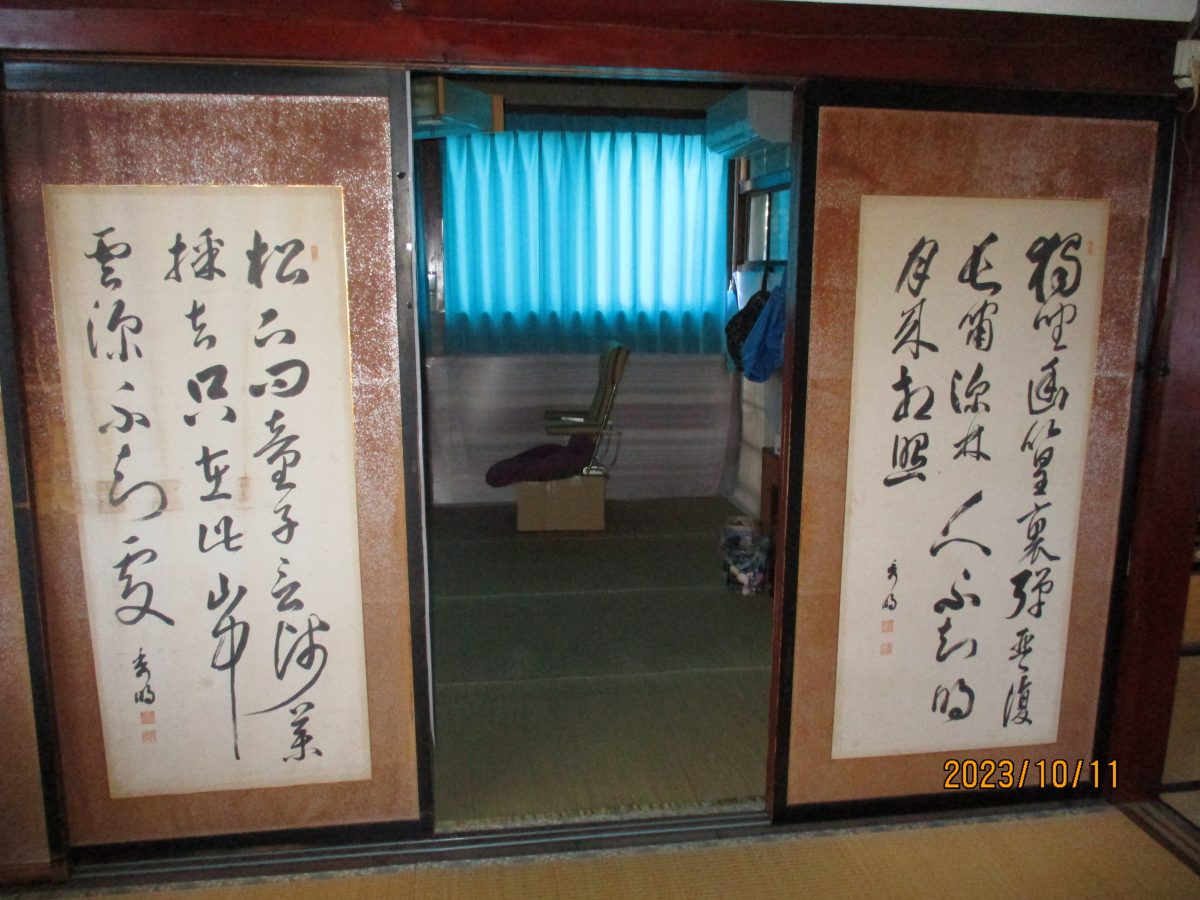 獨坐幽篁裏弾琴復
長嘯深林人不知明
月来相照
秀明
松下問童子言師薬
採去只在此山中
雲深不知處
秀明
2023/10/11